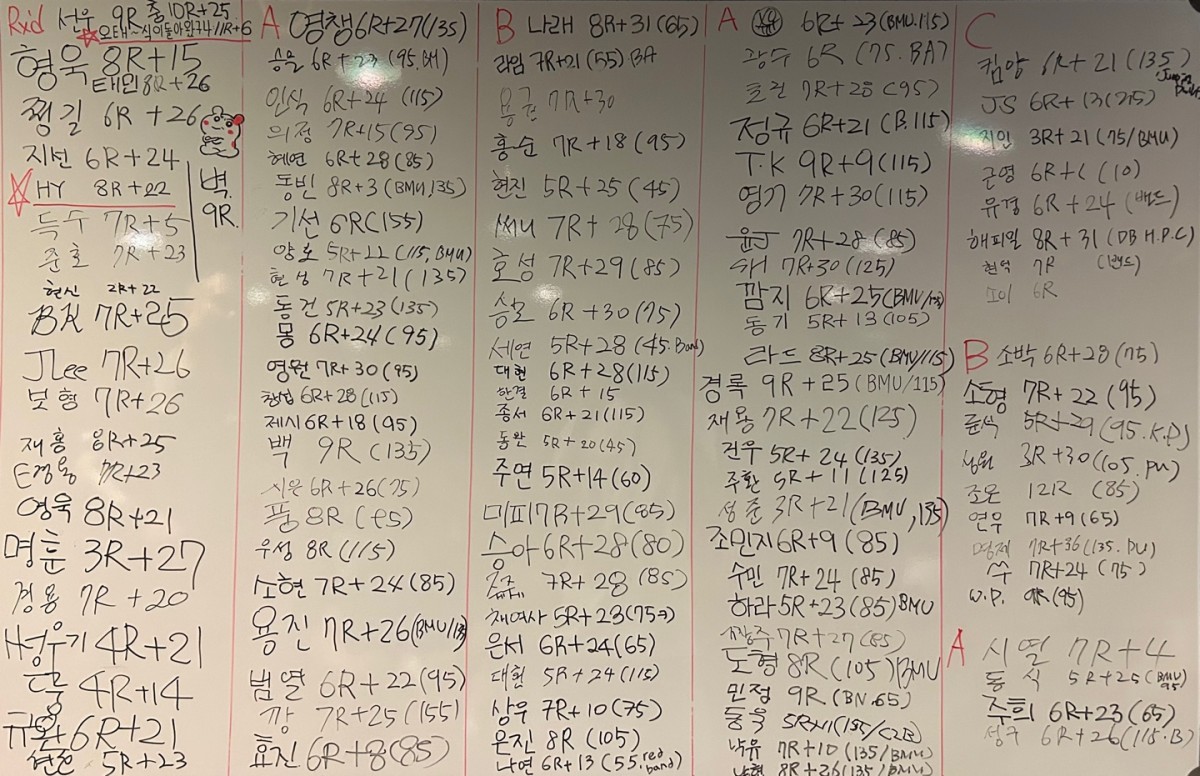 Rxd 선우 9R, 출 10R+25
형욱 8R+15
태민 8R+26
쩡길 6R+26
지선 6R+24
HY 8R+22
벽 9R.
득수 7R+5
준호 7R+23
현신 2R+22
BK 7R+25
JLee 7R+26
보형 7R+26
재홍 8R+25
7R+23
영욱 8R+21
명훈 3R+27
경용 7R+20
4R+21
4R+14
6R+21
5R+23
A 영챙 6R+27(135)
인식 6R+24 (115)
의정 7R+15(95)
혜연 6R+28(85)
동빈 8R+3(BMU,135)
기선 6R(155)
5R+22(115,BMU)
현성 7R+21(135)
동건 5R+23(135)
몽 6R+24(95)
영원 7R+30(95)
6R+28(115)
제시 6R+18(95)
백 9R(135)
시온 6R+26(75)
품 8R
우성 8R(115)
소현 7R+24(85)
용진 7R+26
범열 6R+22(95)
깡 7R+25(155)
효진 6R+8(85)
B 나래 8R+31(65)
라임 7R+21(55)BA
용근 7R+30
홍순 7R+18(95)
현진 5R+25(45)
써니 7R+28(75)
호성 7R+29(85)
6R+30(75)
세연 5R+28(45.Band)
대현 6R+28(115)
한결 6R+15
종서 6R+21(115)
동완 5R+20(45)
주연 5R+14(60)
미피 7R+29(85)
승아 6R+28(80)
7R+28(85)
채여사 5R+23
은서 6R+24(65)
대헌 5R+24(115)
상우 7R+10(75)
은진 8R(105)
나연 6R+13(55.red band)
A 6R+23(BMU.115)
광수 6R(75.BA)
7R+28(95)
정규 6R+21(B.115)
T.K 9R+9(115)
영기 7R+30(115)
윤J 7R+28(85)
7R+30(125)
깜지 6R+25
동기 5R+13(105)
라드 8R+25(BMU/115)
경록 9R+25(BMU/115)
재용 7R+22(125)
건우 5R+24(135)
주환 5R+11(125)
성준 3R+21(BMU,135)
조민지 6R+9(85)
수민 7R+24(85)
하라 5R+23(85)BMU
짱주 7R+27(85)
노형 8R(105)BMU
민정 9R(BN.65)
낙유 7R+10(135/BMU)
8R+26(135/BMU)
C
킴양 6R+21(135)
JS 6R+13(75)
지인 3R+21(75/BMU)
근영
유경 6R+24(밴드)
해피밀 8R+31(DB H.P.C)
현덕 7R (밴드)
소이 6R
B 소박 6R+28(75)
소형 7R+22(95)
윤석 5R+29(95.K.P)
남원 3R+30(105.PU)
조은 12R(85)
연우 7R+9(65)
명제 7R+36(135.PU)
쑤 7R+24(75)
W.P. 9R(95)
A 시열 7R+4
동식 5R+25(BMU 95)
주희 6R+23(65)
성구 6R+26(115.B)